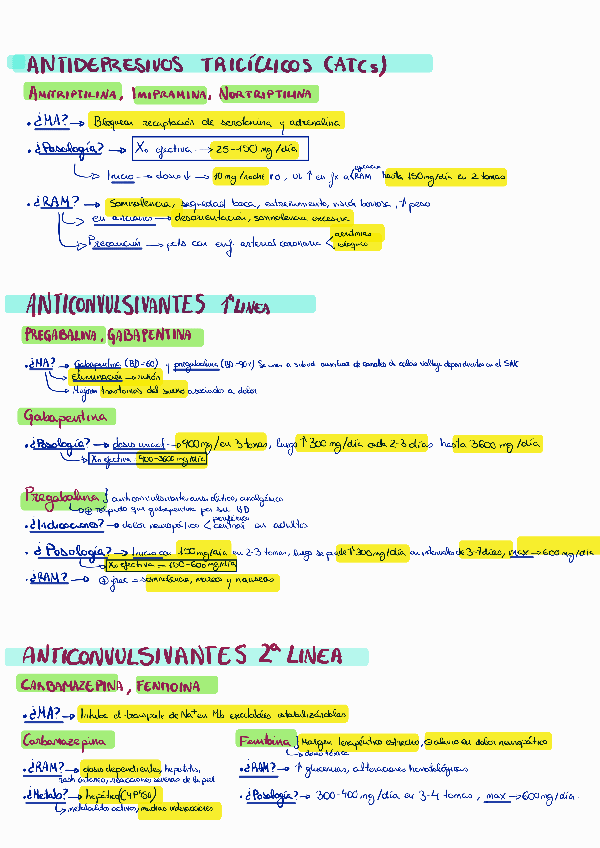 ANTIDEPRESIVOS TRICÍCLICOS (ATCs)
AMITRIPTILINA, IMIPRAMINA, NORTRIPTILINA
• ¿MA? → Bloquean recaptación de serotonina y adrenalina
• ¿Posología? → Xn efectiva → 25-150 mg/día
Inicio → dosis ↓ → 10 mg/noche VO, VL ↑ en fx a < eficacia RAM hasta 150mg/día en 2 tomas
• ¿RAM? → Somnolencia, sequedad boca, estreñimiento, visión borrosa, ↑ peso
en ancianos → desorientación, somnolencia excesiva
Precaución → pcts con enf. arterial coronaria < arritmias bloqueo
ANTICONVULSIVANTES 1ª LINEA
PREGABALINA, GABAPENTINA
• ¿MA? → Gabapentina (BD=60) y pregabalina (BD=90%) Se unen a subud auxiliar de canales de calcio voltaje dependientes en el SNC
Eliminación → riñón
Mejoran trastornos del sueño asociados a dolor
Gabapentina
• ¿Posología? → dosis inicial → 900mg/en 3 tomas, luego ↑ 300 mg/día cada 2-3 días hasta 3600 mg/día
→ Xn efectiva = 900-3600 mg/día
Pregabalina } anticonvulsivante, ansiolítico, analgésico
→ ⊕ rápido que gabapentina por su BD
• ¿Indicaciones? → dolor neuropático < periférico central en adultos
• ¿Posología? → Inicio con 150mg/día en 2-3 tomas, luego se puede ↑ 300mg/día en intervalos de 3-7 días, max → 600 mg/día
→ Xn efectiva = 150-600 mg/día
• ¿RAM? → ⊕ frec = somnolencia, mareos y nauseas
ANTICONVULSIVANTES 2ª LINEA
CARBAMAZEPINA, FENITOINA
• ¿MA? → Inhibe el transporte de Na+ en Mb excitables estabilizándolas
Carbamazepina
• ¿RAM? → dosis dependientes, hepatitis,
rash cutáneo, reacciones severas de la piel
• ¿Metabo? → hepático (CYP450)
→ metabolitos activos, muchas interacciones
Fenitoina } Margen terapéutico estrecho, ⊖ alivio en dolor neuropático
→ dosis tóxica
• ¿RAM? → ↑ glucemias, alteraciones hematológicas
• ¿Posología? → 300-400 mg/día en 3-4 tomas, max → 600mg/día.